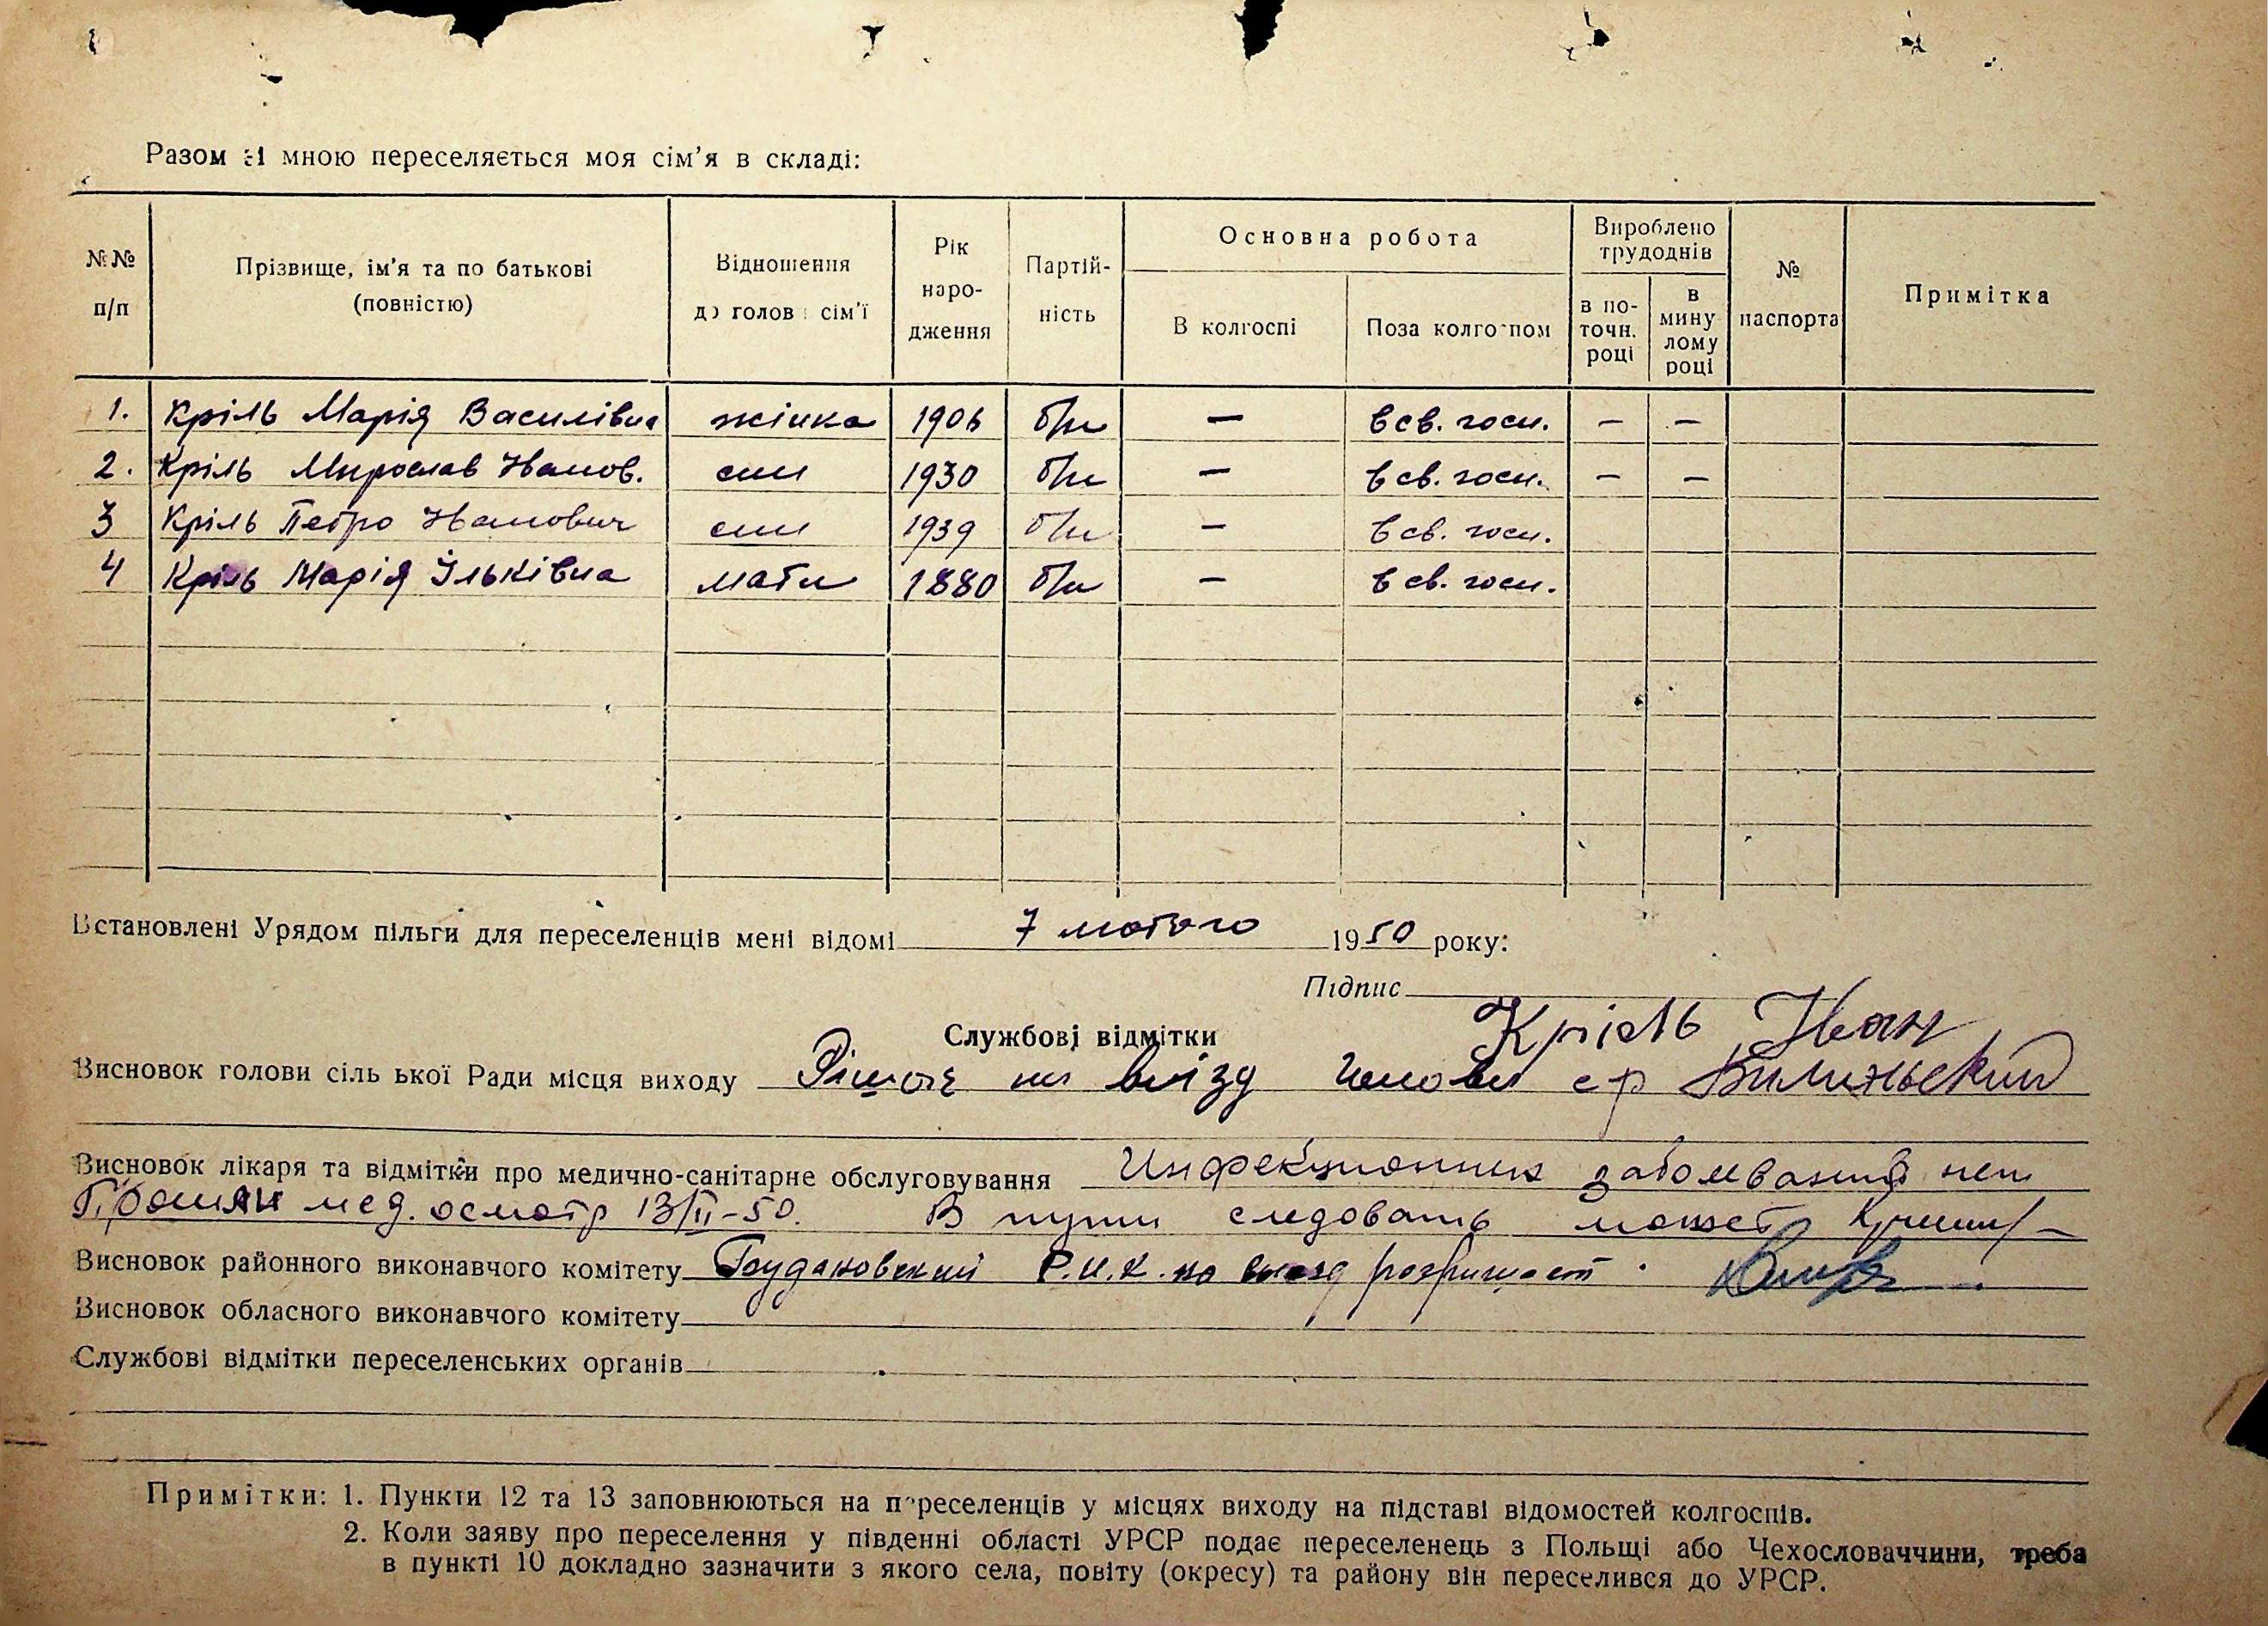 Разом зі мною переселяється моя сім’я в складі:
№№ п/п | Прізвище, ім’я та по батькові (повністю) | Відношення до голови сім’ї | Рік народження | Партійність | Основна робота | Вироблено трудоднів | № паспорта | Примітка
В колгоспі | Поза колгоспом | в поточн. році | в минулому році
1. Кріль Марія Василівна жінка 1906 б/п — в св. госп. — —
2. Кріль Мирослав Иванов. син 1930 б/п — в св. госп. — —
3 Кріль Петро Иванович син 1939 б/п — в св. госп.
4 Кріль Марія Ільківна мати 1880 б/п — в св. госп.
Встановлені Урядом пільги для переселенців мені відомі 7 лютого 1950 року:
Підпис
Кріль Иван
Службові відмітки
Висновок голови сільської Ради місця виходу на виїзд голова с/р
Висновок лікаря та відмітки про медично-санітарне обслуговування Инфекционных заболеваний нет
Прошли мед. осмотр 13/II-50. В пути следовать может
Висновок районного виконавчого комітету Р.И.К. на выезд
Висновок обласного виконавчого комітету
Службові відмітки переселенських органів
Примітки: 1. Пункти 12 та 13 заповнюються на переселенців у місцях виходу на підставі відомостей колгоспів.
2. Коли заяву про переселення у південні області УРСР подає переселенець з Польщі або Чехословаччини, треба
в пункті 10 докладно зазначити з якого села, повіту (окресу) та району він переселився до УРСР.